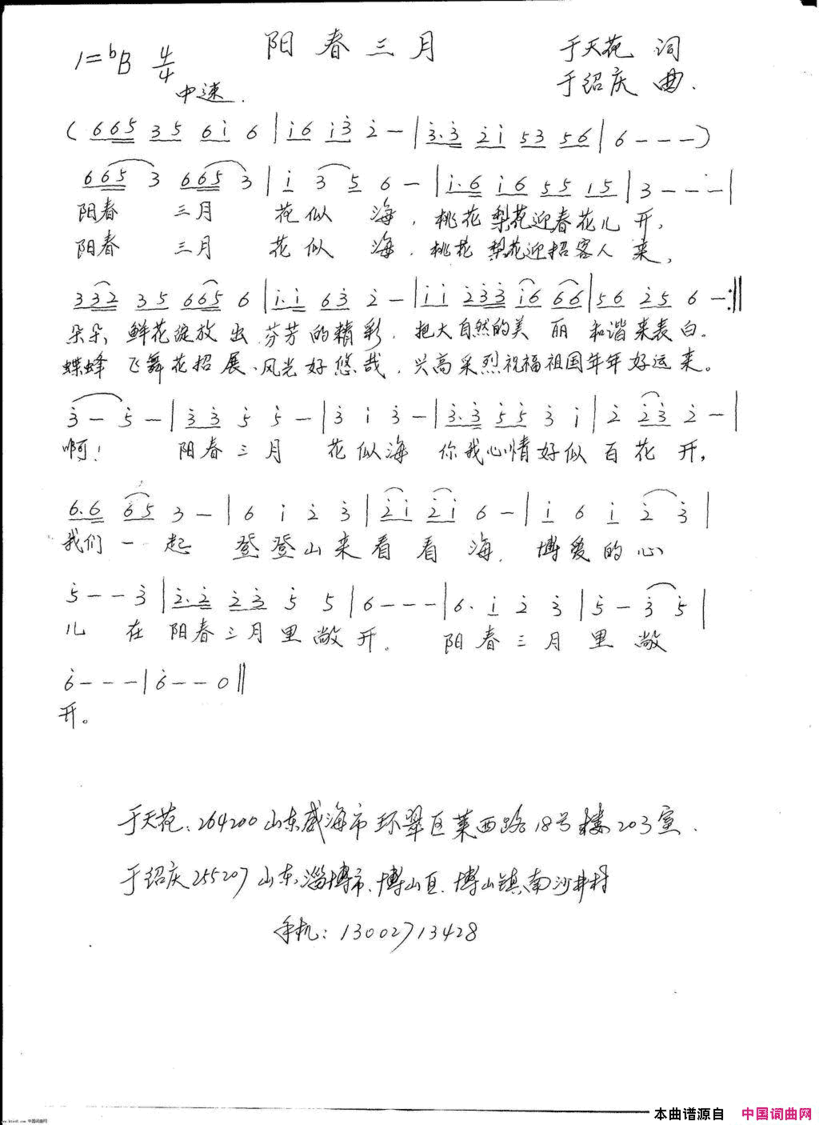 阳春三月
1=ᵇB 4/4
于天苑 词
中速.
于绍庆 曲.
( 6 6 5 3 5 6 i 6 | i 6 i 3̇ 2̇ - | 3̇. 3̇ 2̇ i 5 3 5 6 | 6 - - - )
6 6 5 3 6 6 5 3 | i 3 5 6 - | i. 6 i 6 5 5 i 5 | 3 - - - |
阳春 三月 花似 海，桃花梨花迎春花儿 开，
阳春 三月 花似 海，桃花梨花迎招客人 来，
3 3 2 3 5 6 6 5 6 | i. i 6 3̇ 2̇ - | i i 2̇ 3̇ 3̇ i 6 6 6 | 5 6 2̇ 5 6 - :||
朵朵，鲜花绽放 出 芬芳的精彩，把大自然的美 丽 和谐来表白。
蝶蜂 飞舞花招 展、风光好悠哉，兴高采烈祝福祖国年年好运来。
3̇ - 5̇ - | 3̇ 3̇ 5̇ 5̇ - | 3̇ i 3̇ - | 3̇. 3̇ 5̇ 5̇ 3̇ i | 2̇ 2̇ 3̇ 2̇ - |
啊！ 阳春三月 花似海 你我心情好似百花 开，
6. 6 6 5 3 - | 6 i 2̇ 3̇ | 2̇ i 2̇ i 6 - | i 6 i 2̇ 3̇ |
我们一起 登登山来看看 海，博爱的心
5̇ - - 3̇ | 2̇. 2̇ 2̇ 3̇ 5̇ 5 | 6 - - - | 6. i 2̇ 3̇ | 5̇ - 3̇ 5̇ |
儿 在 阳春三月里敞开。 阳春三月 里 敞
6̇ - - - | 6̇ - - 0 ||
开。
于天苑、264200山东威海市环翠区莱西路18号楼203室.
于绍庆255207山东，淄博市、博山区、博山镇，南沙井村
手机：13002713428
本曲谱源自 中国词曲网
中国词曲网